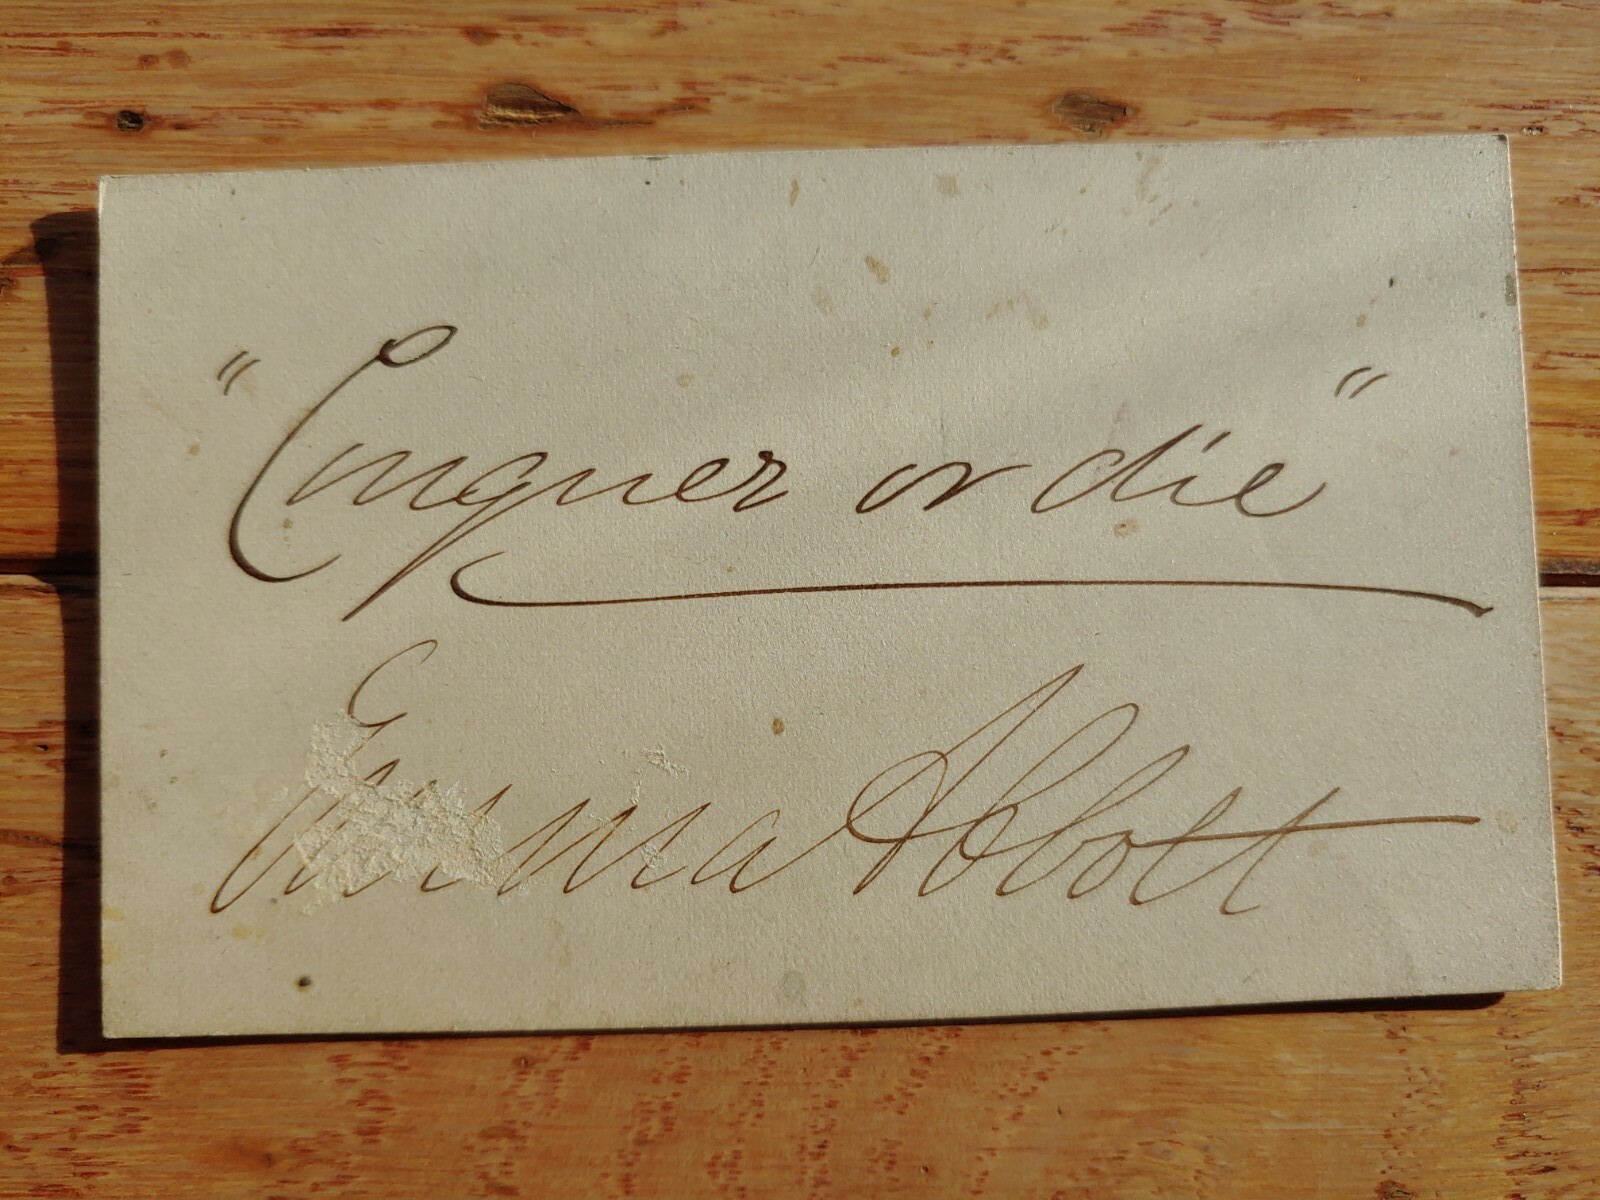 "Conquer or die"
Emma Abbott